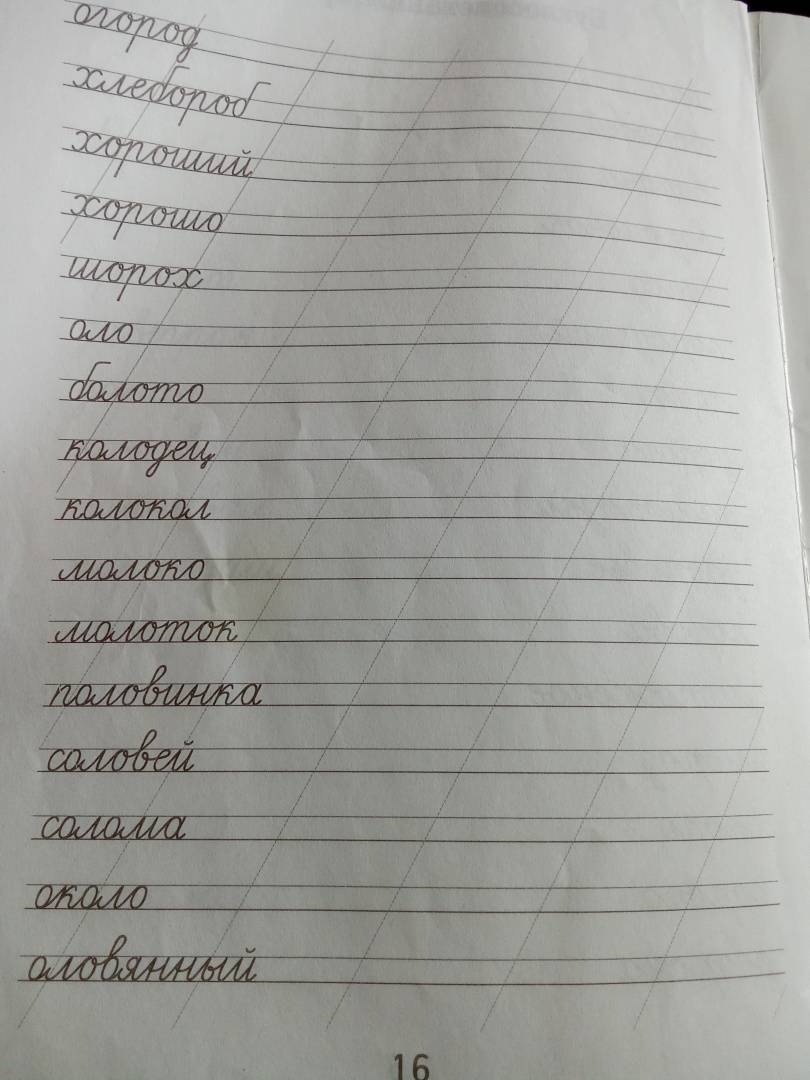 огород
хлебороб
хороший
хорошо
шорох
оло
болото
колодец
колокол
молоко
молоток
половинка
соловей
солома
около
оловянный
16